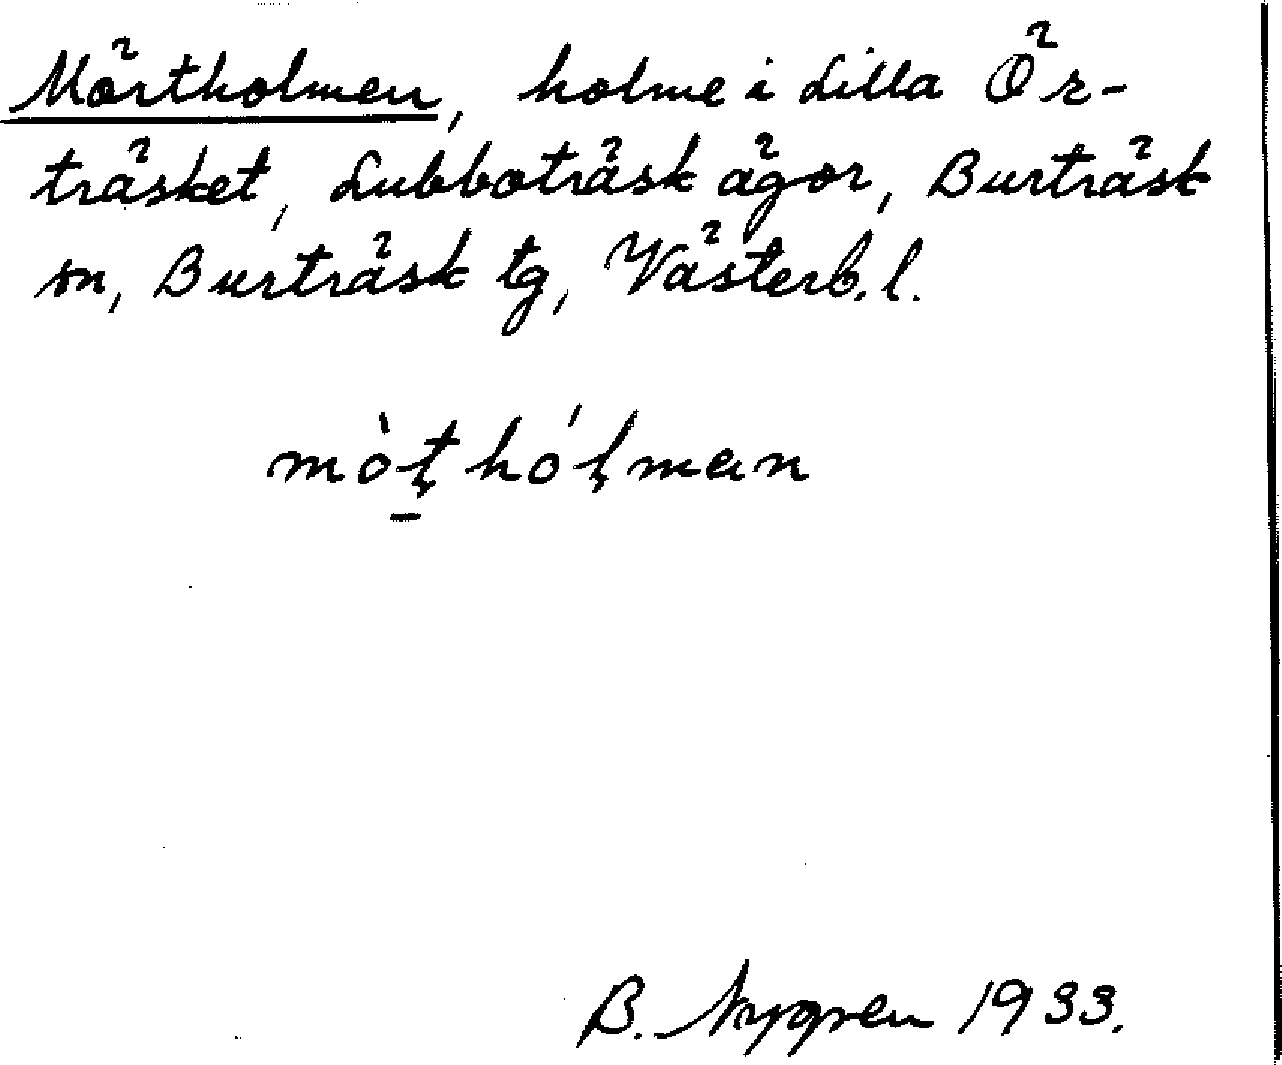 Mörtholmen, holme i Lilla Ör-
träsket, Lubboträsk ägor, Burträsk
sn, Burträsk tg, Västerb. l.
mò̱ʈhóɭman
B. Nygren 1933.